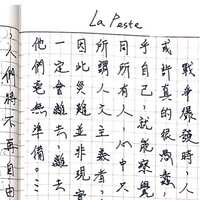 La Peste
戰爭爆發時，人
或許真的很愚蠢，
乎自己，就能察覺
同所有人，心中只
所謂人文主義者，
因此災難並非現實
一定會離去，離去
他們毫無準備。…
，人們將不再自由